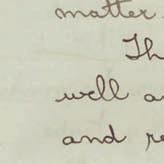 matter
Th
well a
and re